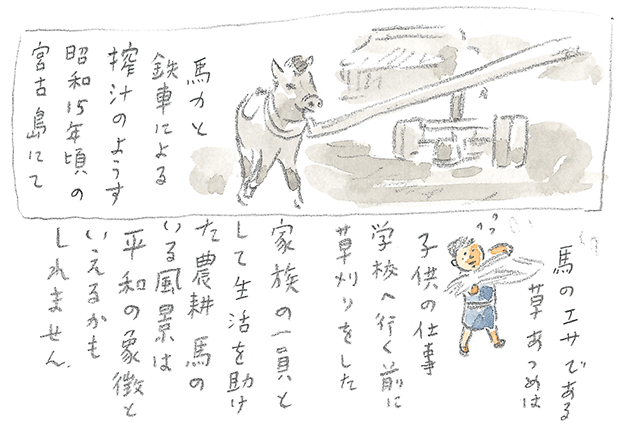 馬力と
鉄車による
搾汁のようす
昭和15年頃の
宮古島にて
馬のエサである
草あつめは
子供の仕事
学校へ行く前に
草刈りをした
家族の一員と
して生活を助け
た農耕馬の
いる風景は
平和の象徴と
いえるかも
しれません。